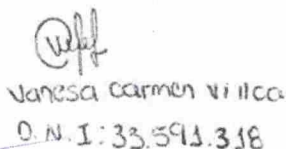 Vanesa Carmen Villca
D.N.I: 33.591.318